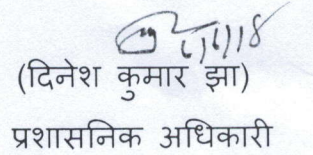 (दिनेश कुमार झा)
प्रशासनिक अधिकारी